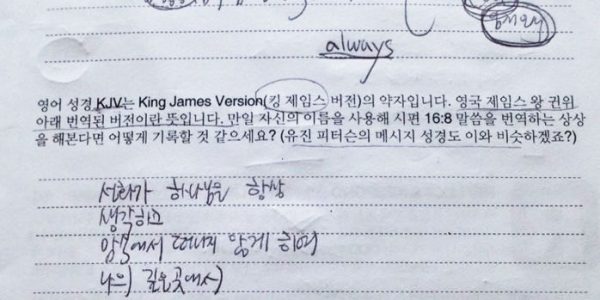 always
영어 성경 KJV는 King James Version(킹 제임스 버전)의 약자입니다. 영국 제임스 왕 권위
아래 번역된 버전이란 뜻입니다. 만일 자신의 이름을 사용해 시편 16:8 말씀을 번역하는 상상
을 해본다면 어떻게 기록할 것 같으세요? (유진 피터슨의 메시지 성경도 이와 비슷하겠죠?)
하나님을 항상
생각하고
앞에서 떠나지 않게 하며
나의 깊은곳에서